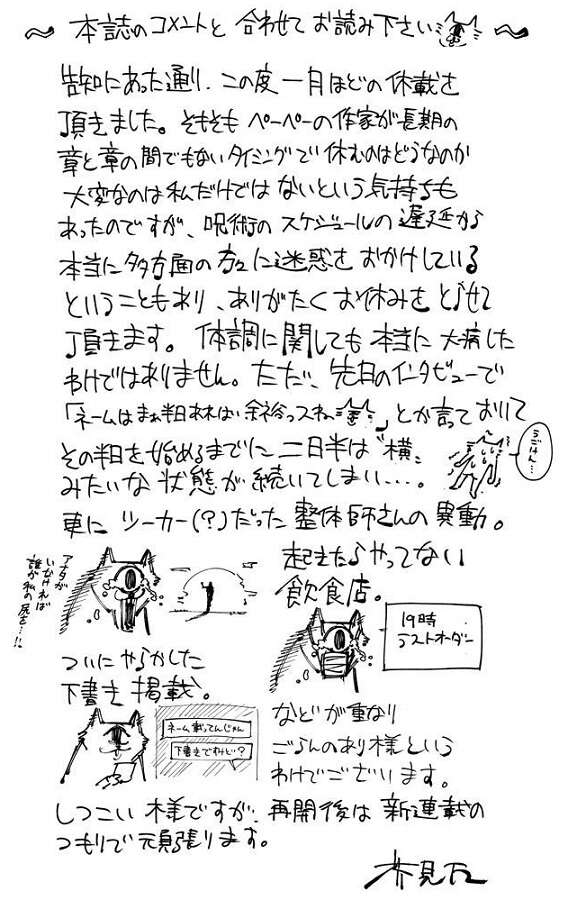 〜本誌のコメントと合わせてお読み下さい〜
告知にあった通り、この度一月ほどの休載を
頂きました。そもそもペーペーの作家が長期の
章と章の間でもないタイミングで休むのはどうなのか
大変なのは私だけではないという気持ちも
あったのですが、呪術のスケジュールの遅延から
本当に多方面の方々に迷惑をおかけしている
ということもあり、ありがたくお休みをとらせて
頂きます。体調に関しても本当に大病した
わけではありません。ただ、先日のインタビューで
「ネームはまぁ半日あれば余裕っスね」とか言っておいて
その半日を始めるまでに二日半は〝横〟
みたいな状態が続いてしまい…。
うごけん…
更にツーカー(?)だった整体師さんの異動。
アナタが
いなければ
誰が私の尻を…!!
起きたらやってない
飲食店。
19時
ラストオーダー
ついにやらかした
下書き掲載。
ネーム載ってんじゃん
下書きですけど?
などが重なり
ごらんのあり様という
わけでございます。
しつこい様ですが、再開後は新連載の
つもりで頑張ります。
芥見下々